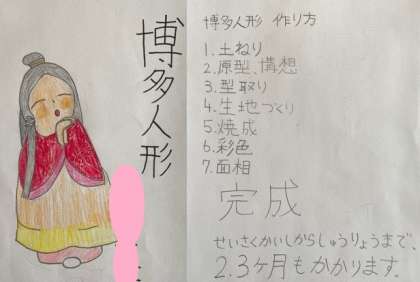 博多人形
博多人形 作り方
1.土ねり
2.原型、構想
3.型取り
4.生地づくり
5.焼成
6.彩色
7.面相
完成
せいさくかいしからしゅうりょうまで、
2.3ヶ月もかかります。